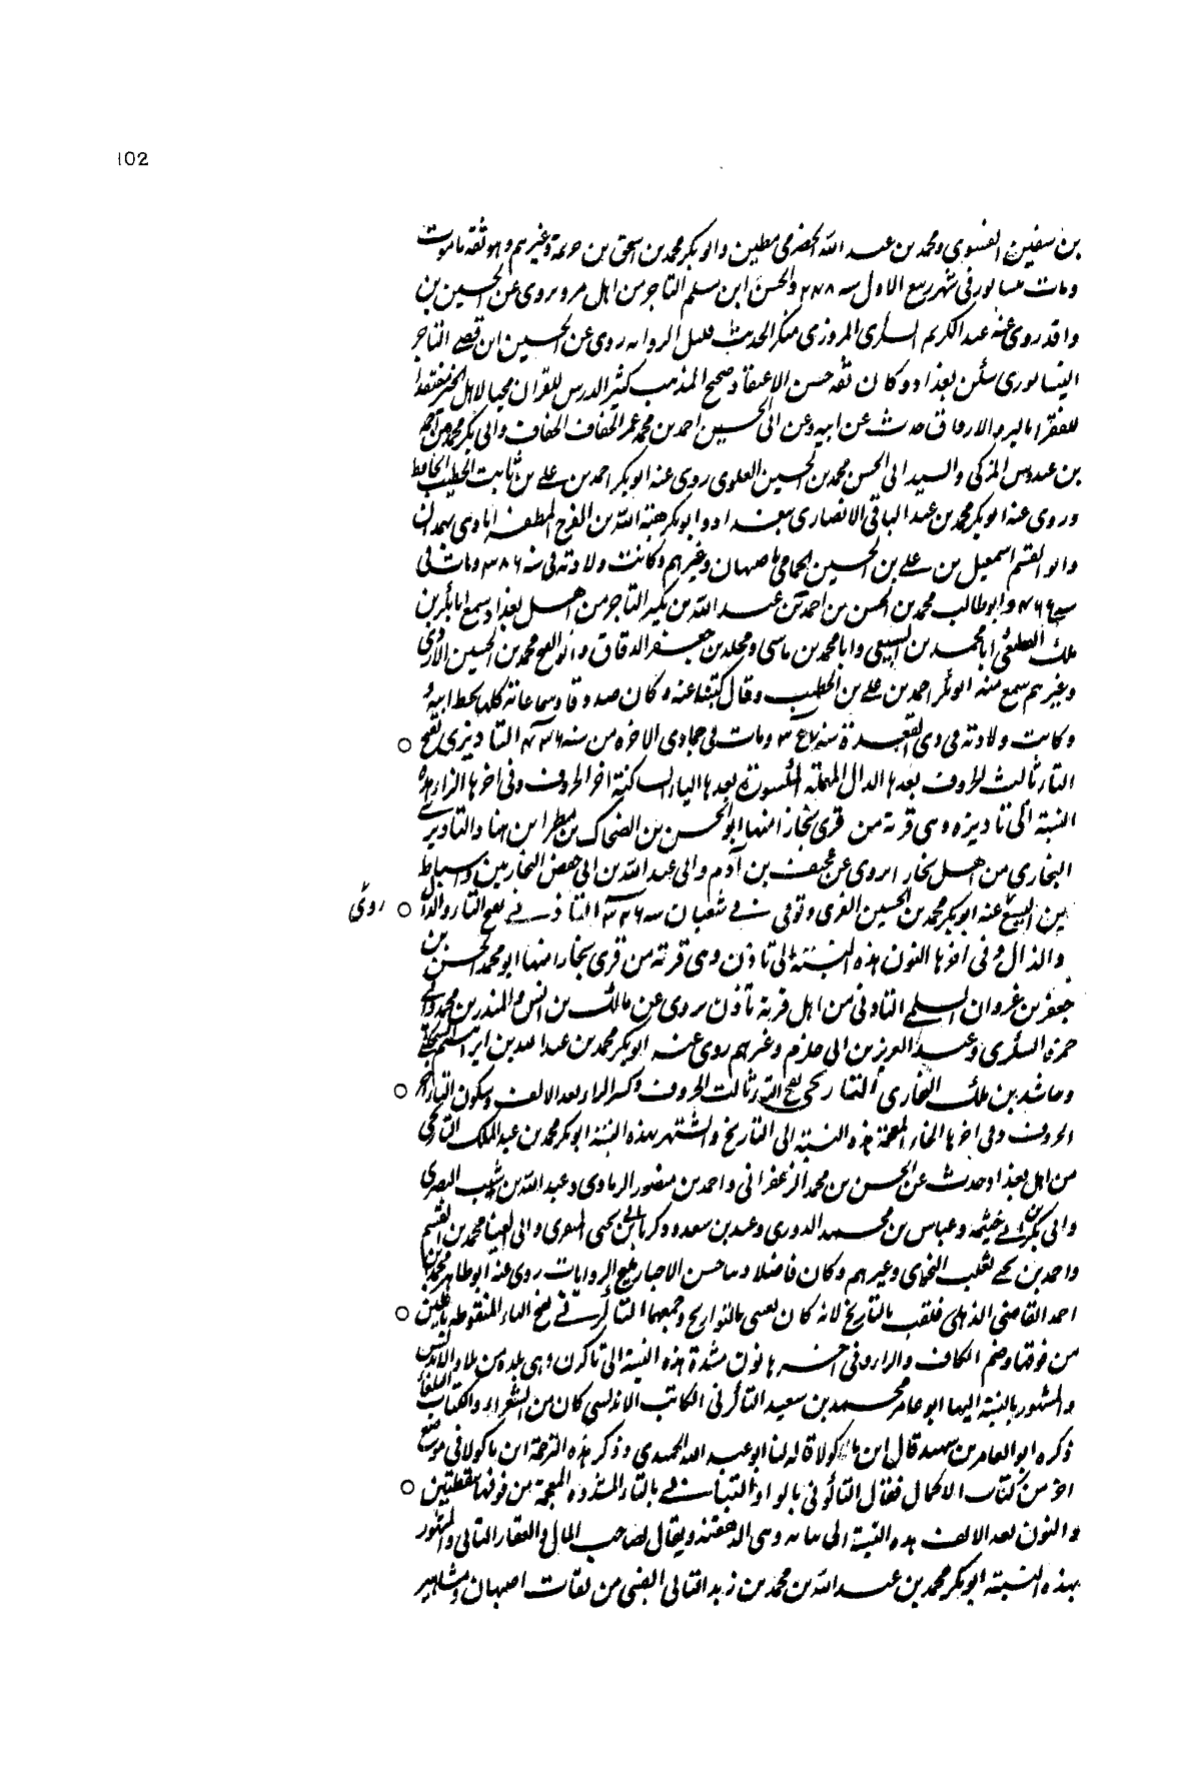 102
بن سفين الفسوى ومحمد بن عبد الله الحضرمى مطين وابو بكر محمد بن اسحق بن خزيمة وغيرهم وهو ثقة مات
ومات بنيسابور فى شهر ربيع الاول سنه والحسن ابن مسلم التاجر من اهل مرو يروى عن الحسين بن
واقد روى عنه عبد الكريم السكرى المروزى منكر الحديث قليل الروايه روى عن الحسين ابن التاجر
النيسابورى سكن بغداد وكان ثقه حسن الاعتقاد صحيح المذهب كثير الدرس للقران محبا لاهل الخير متفقدا
للفقرا بالبر والارفاق حدث عن ابيه وعن ابى الحسين احمد بن محمد بن عمر الخفاف الخفاف وابى بكر محمد بن احمد
بن عبدوس المزكى والسيد ابى الحسن محمد بن الحسين العلوى روى عنه ابو بكر احمد بن على بن ثابت الخطيب الحافظ
وروى عنه ابو بكر محمد بن عبد الباقى الانصارى ببغداد وابو بكر هبة الله بن الفرج الظفرابادى بهمدان
وابو القسم اسمعيل بن على بن الحسين الحمامى باصبهان وغيرهم وكانت ولادته فى سنه ٣٨٦ ومات فى
سنه ٤٦٦ وابو طالب محمد بن الحسن بن احمد بن عبد الله بن بكير التاجر من اهل بغداد سمع ابا بكر بن
ملك القطيعى وابا محمد بن السبيعى وابا محمد بن ماسى ومخلد بن جعفر الدقاق وابو الفتح محمد بن الحسين الازدى
وغيرهم سمع منه ابو بكر احمد بن على بن الخطيب وقال كتبنا عنه وكان صدوقا وسماعاته كلها بخط ابيه
وكانت ولادته فى ذى القعدة سنه ومات فى جمادى الاخره من سنه ٤٣٦ التاديزى بفتح ○
التاء ثالث الحروف بعدها الدال المهملة المكسورة بعدها الياء الساكنة اخر الحروف وفى اخرها الزاء هذه
النسبة الى تاديزه وهى قرية من قرى بخارا منها ابو الحسن بن الضحاك بن مطر ابن هناد التاديزى
البخارى من اهل بخارا يروى عن بن آدم وابى عبد الله بن ابى حفص البخاريين واسباط
بن اليسع عنه ابو بكر محمد بن الحسين المقرى وتوفى فى شعبان سنه ٣٢٦ التاذنى بفتح التاء والدا ○ روى
والذال وفى اخرها النون هذه النسبة الى تاذن وهى قرية من قرى بخارا منها ابو محمد الحسن بن
جعفر بن غزوان السلمى التاذنى من اهل قرية تاذن يروى عن مالك بن انس والمنذر بن محمد وابى
حمزه السكرى وعبد العزيز بن ابى حازم وغيرهم روى عنه ابو بكر محمد بن عبد الله بن ابرهيم
وحاشد بن ملك البخارى التاريخى بفتح التاء ثالث الحروف وكسر الراء بعد الالف وسكون الياء اخر ○
الحروف وفى اخرها الخاء المعجمة هذه النسبة الى التاريخ واشتهر بهذه النسبة ابو بكر محمد بن عبد الملك التاريخى
من اهل بغداد حدث عن الحسن بن محمد الزعفرانى واحمد بن منصور الرمادى وعبد الله بن شبيب البصرى
وابى بكر بن ابى خيثمه وعباس بن محمد الدورى وعبد بن سعد وزكريا بن يحيى المقرى وابى العينا محمد بن القسم
واحمد بن يحيى ثعلب النحوى وغيرهم وكان فاضلا اديبا حسن الاخبار مليح الروايات روى عنه ابو طاهر محمد بن
احمد القاضى الذهلى فلقب بالتاريخى لانه كان يعنى بالتواريخ وجمعها التاكرنى بفتح التاء المنقوطه باثنين ○
من فوقها وضم الكاف والراء وفى اخرها نون مشددة هذه النسبة الى تاكرن وهى بلدة من بلاد الاندلس
والمشهور بالنسبة اليها ابو عامر محمد بن سعيد التاكرنى الكاتب الاندلسى كان من الشعراء والكتاب البلغا
ذكره ابو العامر بن شهيد قال ابن ماكولا قاله لنا ابو عبد الله الحميدى وذكر هذه الترجمة ابن ماكولا فى موضع
اخر من كتاب الاكمال فقال التاكرنى بالواو التبانى بالتاء المشددة المعجمة من فوقها بنقطتين ○
والنون بعد الالف هذه النسبة الى تنايه وهى الدهقنة ويقال لصاحب المال والعقار التانى والمشهور
بهذه النسبة ابو بكر محمد بن عبد الله بن محمد بن زيد التانى الضبى من ثقات اصبهان ومشاهير